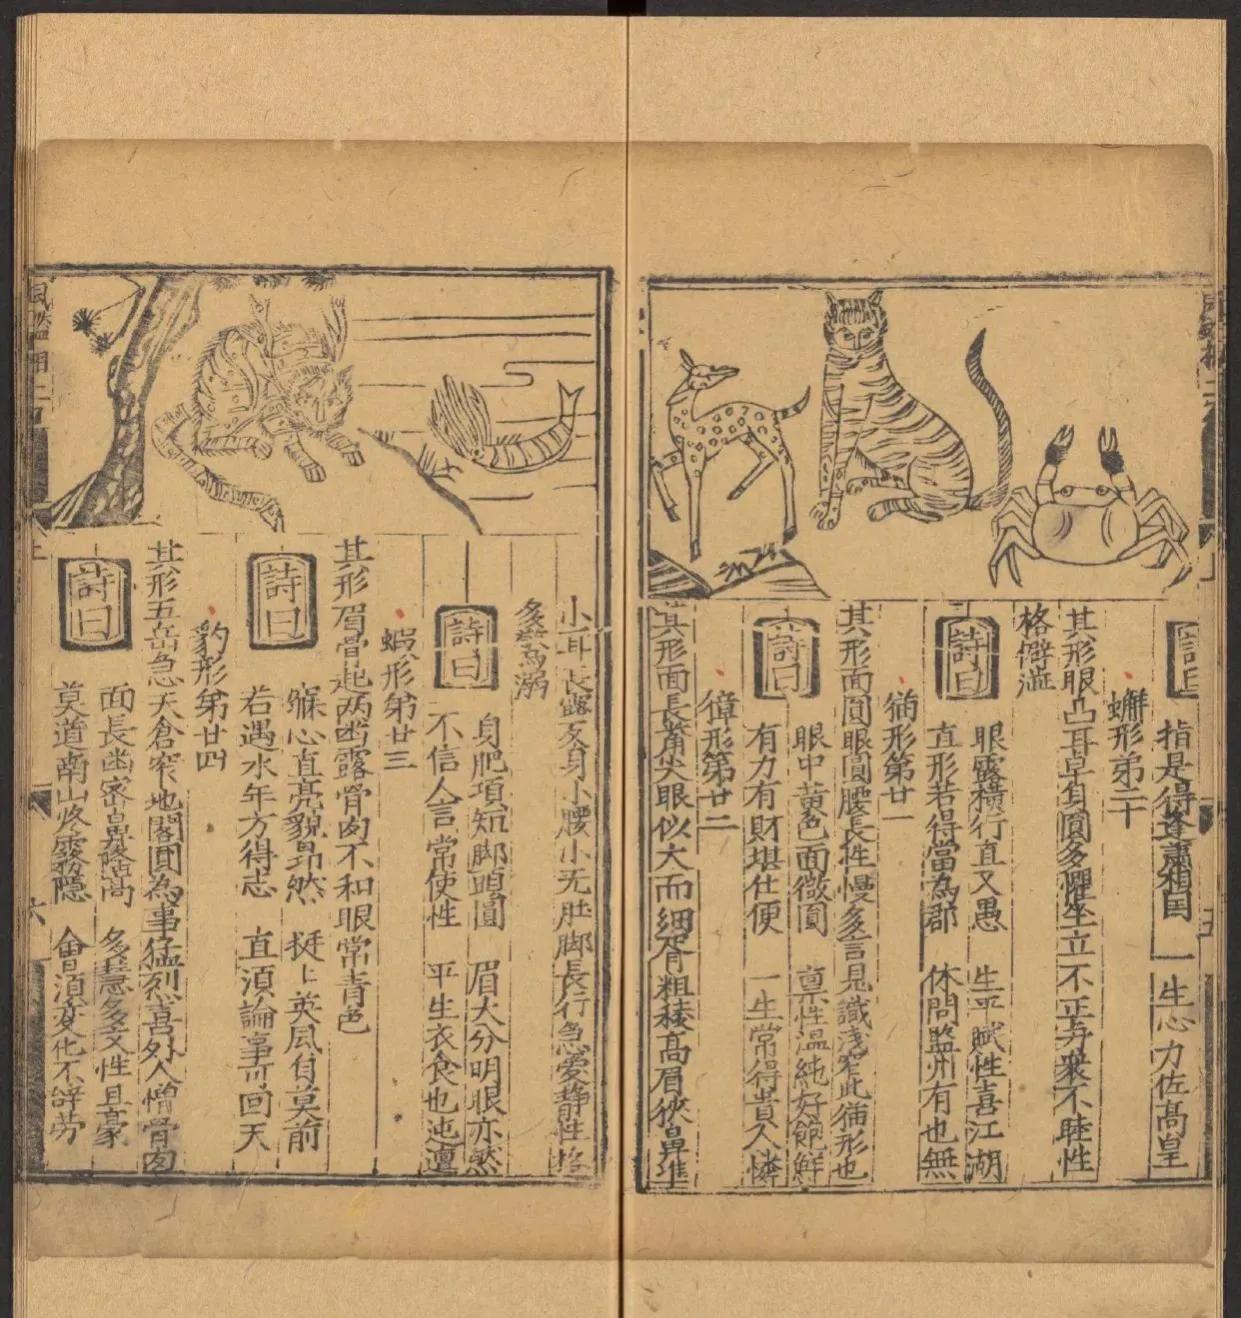 詩曰
指是得逢蕭相国 一生心力佐高皇
蠏形弟二十
其形眼凸耳卓自圓多懼坐立不正与衆不睦性
格僻澁
詩曰
眼露橫行直又愚 生平賦性喜江湖
直形若得當為郡 休問監州有也無
猫形第廿一
其形面圓眼圓腰長性慢多言見識淺窄此猫形也
詩曰
眼中黃色面微圓 稟性温純好飽鮮
有力有財堪仕便 一生常得貴人憐
獐形第廿二
其形面長鼻尖眼似大而細骨粗稜高眉狹鼻準
小耳長露反身小腰小无肚脚長行急愛静性格
多驚溺
詩曰
身肥項短脚蹄圓 眉大分明眼亦然
不信人言常使性 平生衣食也迍邅
蝦形第廿三
其形眉骨起两齒露骨肉不和眼常青色
詩曰
心直亮貌昂然 挺上英風自莫前
若遇水年方得志 直須論事可回天
豹形第廿四
其形五岳急天倉窄地閣圓為事猛烈喜外人憎骨肉
詩曰
面長齒密鼻隆高 多慧多文性且豪
莫道南山終霧隱 會須変化不辞劳